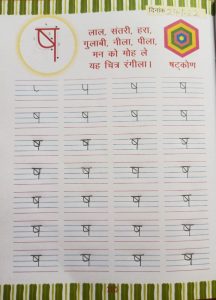 दिनांक
ष
लाल, संतरी, हरा,
गुलाबी, नीला, पीला,
मन को मोह ले
यह चित्र रंगीला।
षट्कोण
ष ष
ष ष ष ष
ष ष ष ष
ष ष ष ष
ष ष ष ष
ष ष ष ष
ष ष ष ष